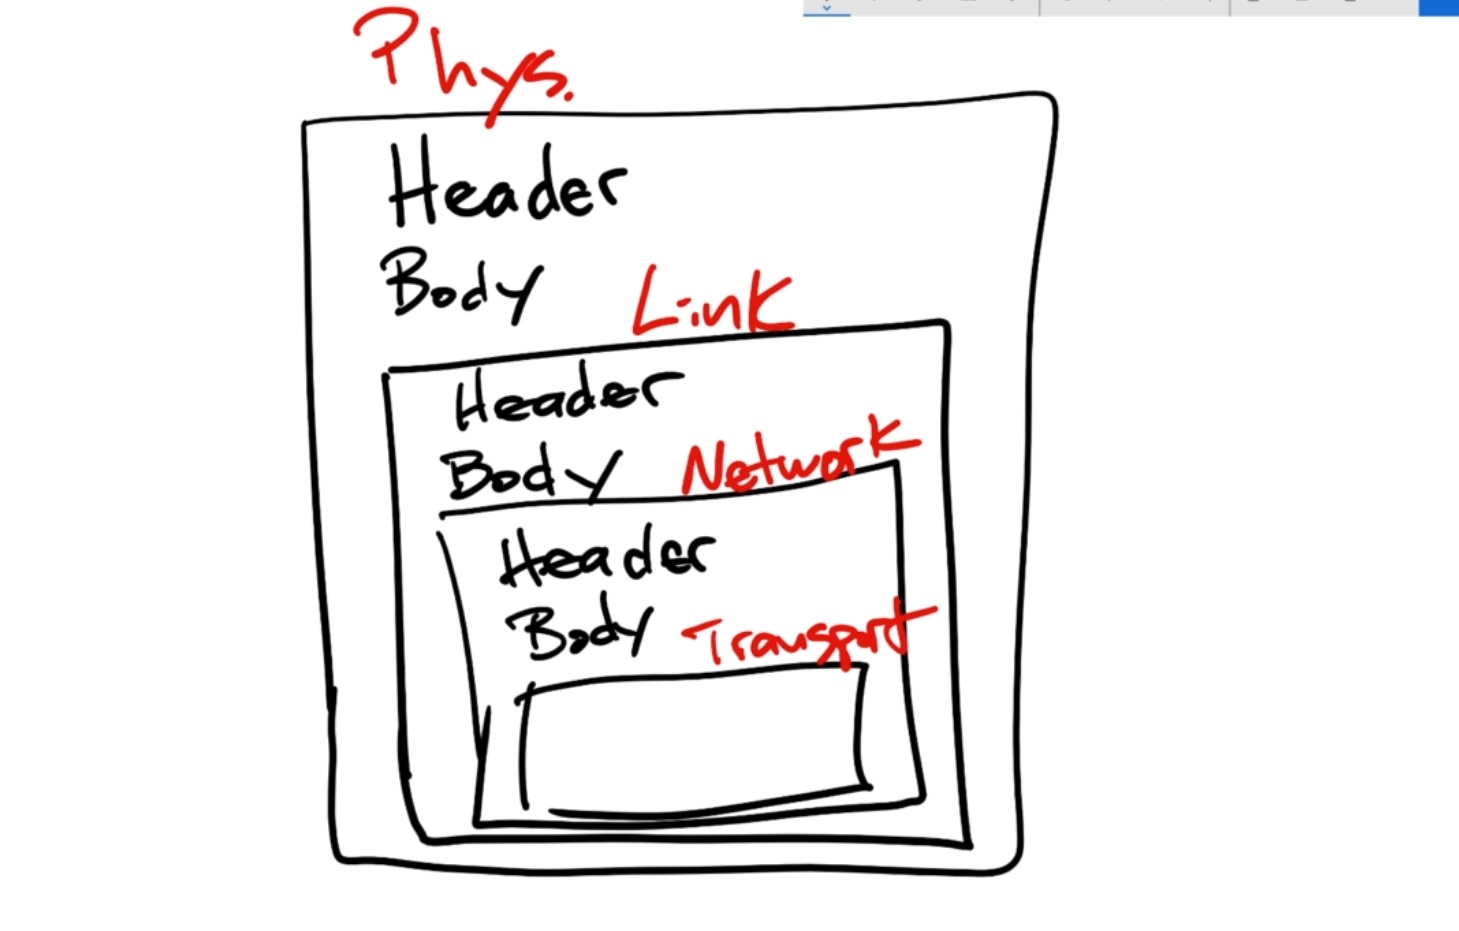 Phys.
Header
Body
Link
Header
Body
Network
Header
Body
Transport